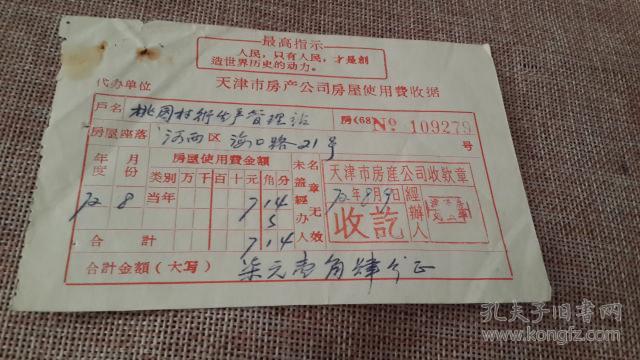 最高指示
人民，只有人民，才是創
造世界历史的动力。
代办单位
天津市房产公司房屋使用費收据
戶名 桃园村街生产管理站 房(68) № 109279 号
房屋座落 河西区 海口路21号
年度 月份 房屋使用費金額 未盖經办人 名章无效 天津市房產公司收款章
类別 万 千 百 十 元 角 分 72年8月9日 經辦人
72 8 当年 7 1 4 收訖
合計 7 1 4
合計金額（大写） 柒元壹角肆分正
孔夫子旧书网
kongfz.com